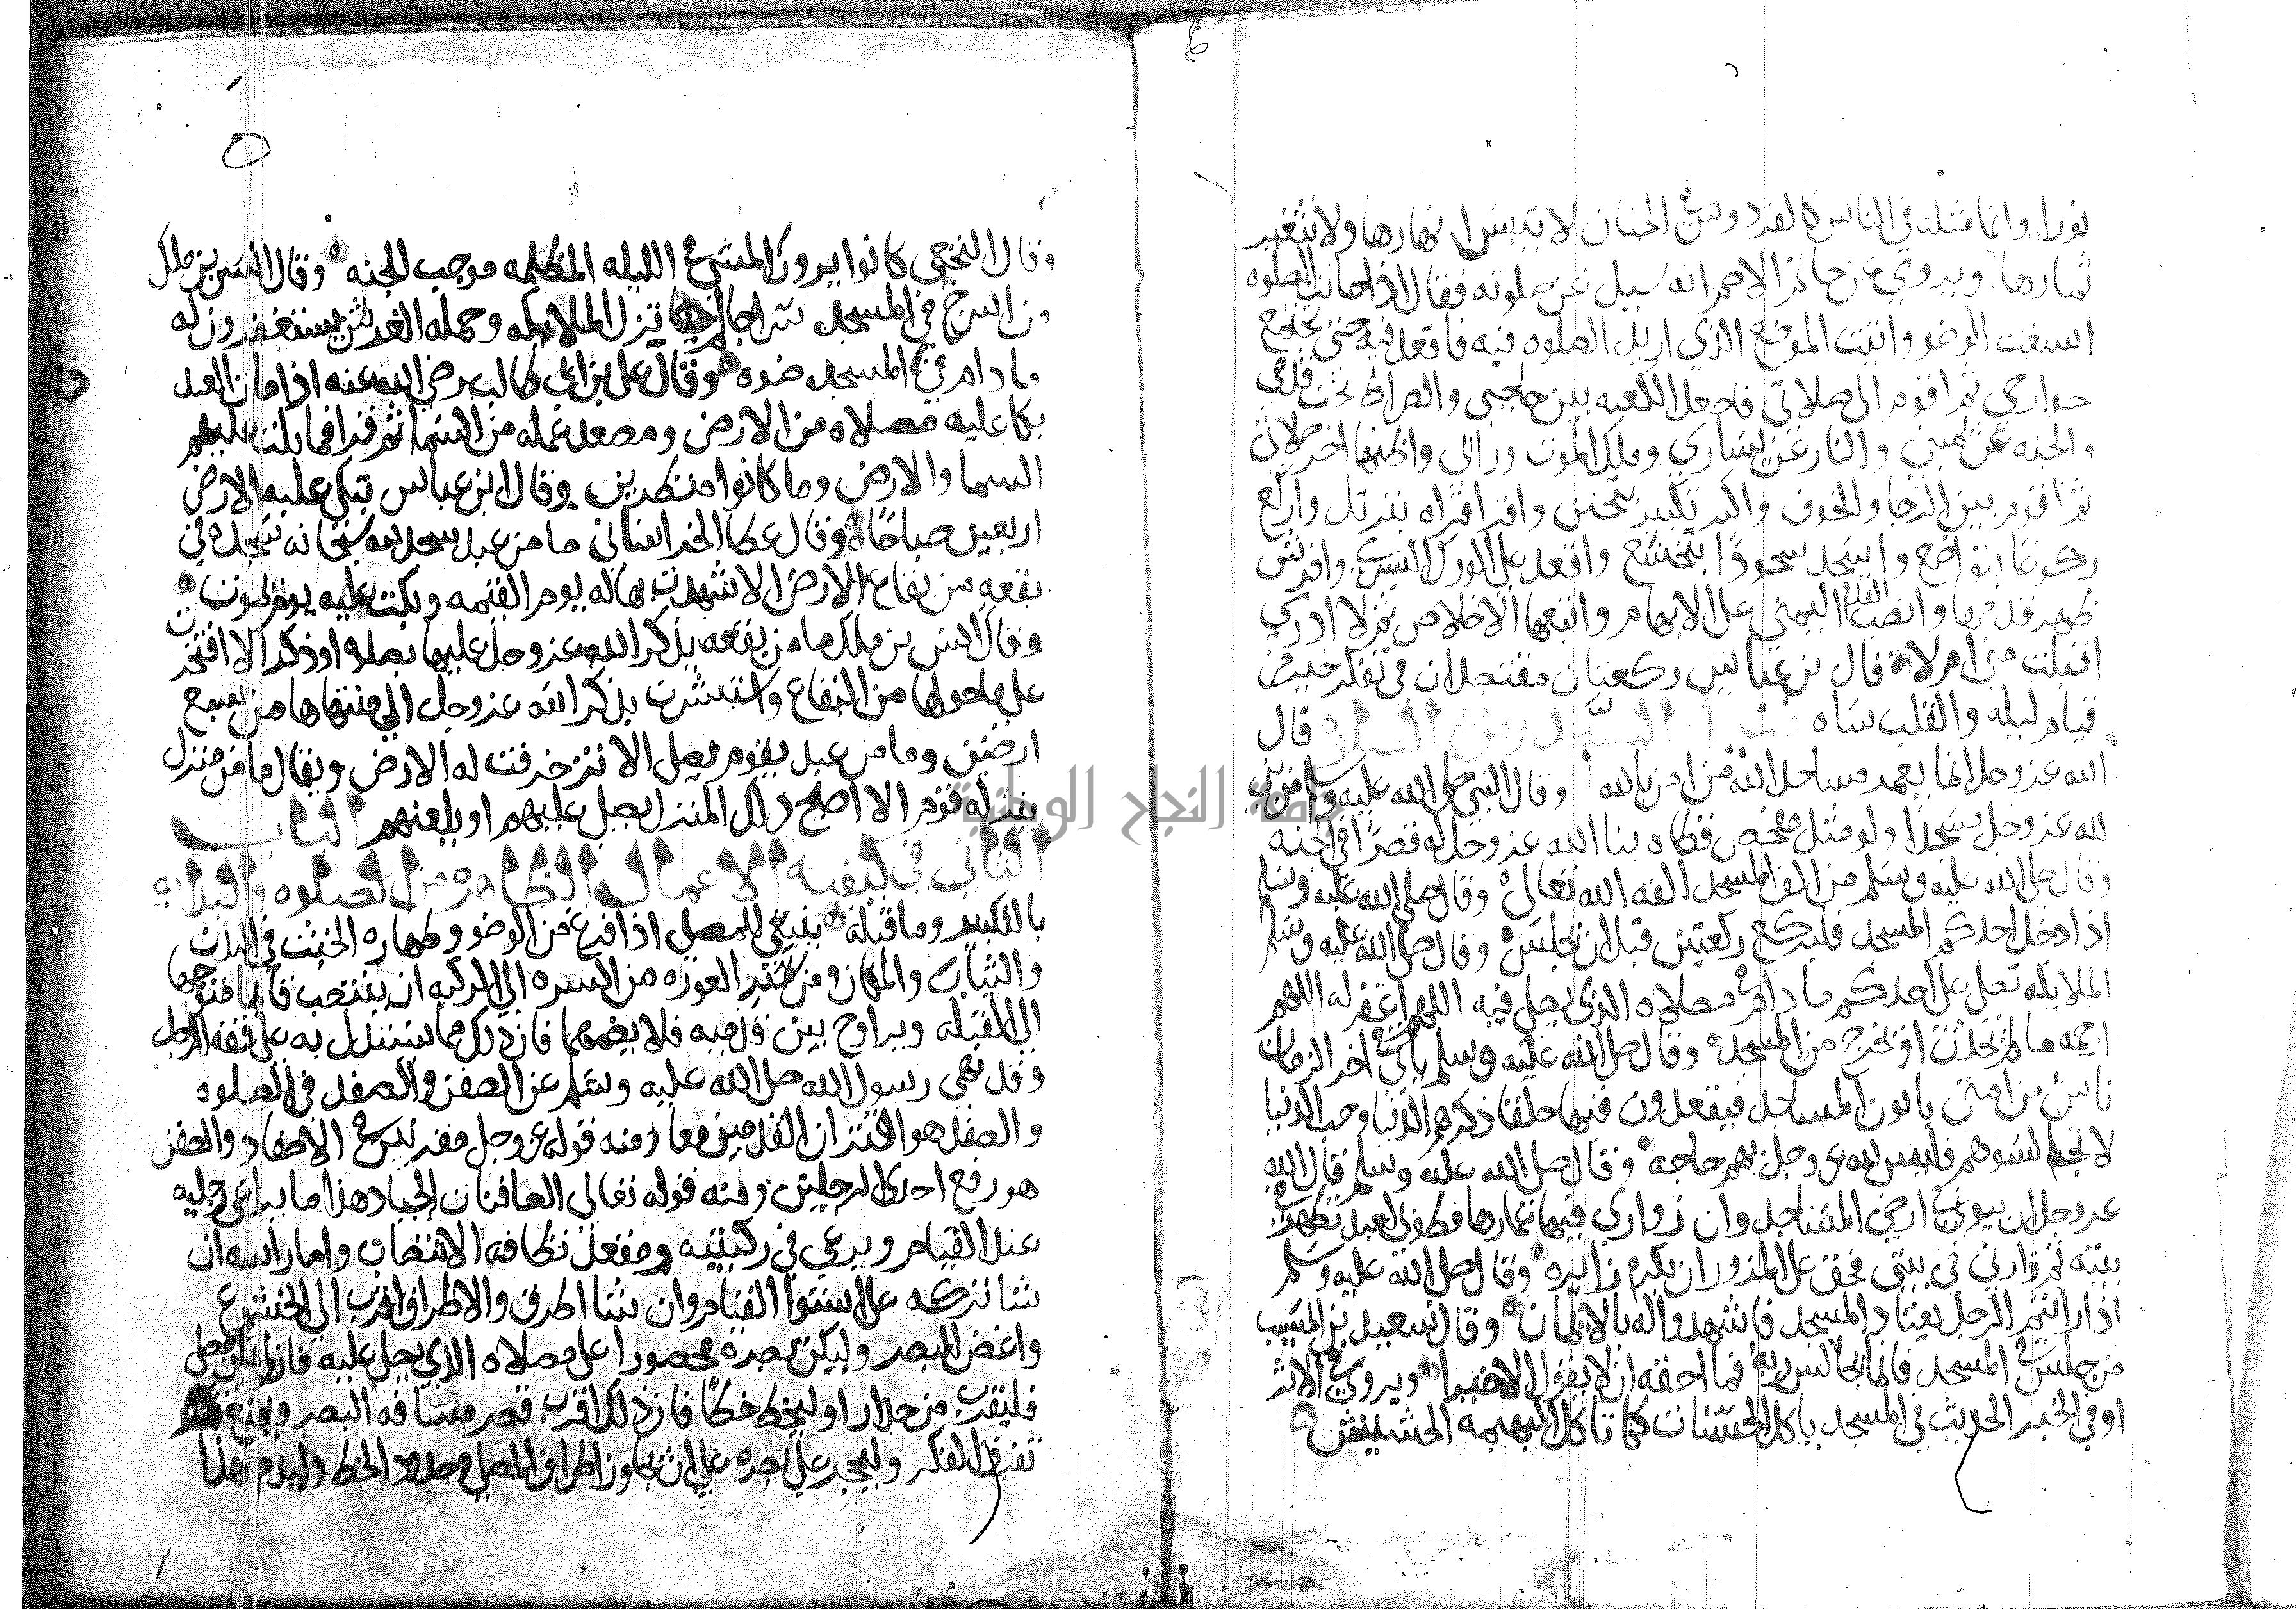 نورا وانما مثله في الناس كالفردوس في الجنان لا تيبس انهارها ولا تتغير
ثمارها ويروي عن حاتم الاصم انه سيل عن صلوته فقال اذا حانت الصلوه
اسبغت الوضو واتيت الموضع الذي اريد الصلوه فيه فاقعد فيه حتى تجتمع
جوارحي ثم اقوم الى صلاتي فاجعل الكعبه بين حاجبي والصراط تحت قدمي
والجنه عن يميني والنار عن يساري وملك الموت وراي واظنها اخر صلاتي
ثم اقوم بين الرجا والخوف واكبر تكبير بتحنن واقرا قراه بترتل واركع
ركوعا بتواضع واسجد سجودا بتخشع واقعد على الورك اليسري وافرش
ظهر قدمها وانصب القدم اليمني على الابهام واتبعها الاخلاص ثم لا ادري
اقبلت مني ام لا قال بن عباس ركعتان مقتصدتان في تفكر خير من
قيام ليله والقلب ساه قال
الله عز وجل انما يعمر مساجد الله من امن بالله وقال النبي صلى الله عليه وسلم من بني
لله عز وجل مسجدا ولو مثل مفحص قطاه بنا الله عز وجل له قصرا في الجنه
وقال صلى الله عليه وسلم من الف المسجد الفه الله تعالى وقال صلى الله عليه وسلم
اذا دخل احدكم المسجد فليركع ركعتين قبل ان يجلس وقال صلى الله عليه وسلم
الملايكه تصلى على احدكم ما دام في مصلاه الذي يصلي فيه اللهم اغفر له اللهم
ارحمه ما لم يحدث او يخرج من المسجد وقال صلى الله عليه وسلم ياتي في اخر الزمان
ناس من امتي ياتون المساجد فيقعدون فيها حلقا ذكرهم الدنيا وحب الدنيا
لا تجالسوهم فليس لله عز وجل بهم حاجه وقال صلى الله عليه وسلم قال الله
عز وجل ان بيوتي في ارضي المساجد وان زواري فيها عمارها فطوبى لعبد تطهر في
بيته ثم زارني في بيتي فحق على المزور ان يكرم زايره وقال صلى الله عليه وسلم
اذا رايتم الرجل يعتاد المسجد فاشهدوا له بالايمان وقال سعيد بن المسيب
من جلس في المسجد فانما يجالس ربه فما احقه ان لا يقول الا خيرا ويروي في الاثر
او في الخبر الحديث في المسجد ياكل الحسنات كما تاكل البهيمه الحشيش
وقال النخعي كانوا يرون المشي في الليله المظلمه موجب للجنه وقال انس بن ملك
من اسرج في المسجد سراجا لم تزل الملايكه وحمله العرش يستغفرون له
ما دام في المسجد ضوه وقال على بن ابي طالب رضي الله عنه اذا مات العبد
بكا عليه مصلاه من الارض ومصعد عمله من السما ثم قرا فما بكت عليهم
السما والارض وما كانوا منظرين وقال ابن عباس تبكي عليه الارض
اربعين صباحا وقال عطا الخراساني ما من عبد يسجد لله سبحانه سجده في
بقعه من بقاع الارض الا شهدت بها له يوم القيمه وبكت عليه يوم يموت
وقال انس بن ملك ما من بقعه يذكر الله عز وجل عليها بصلوه او ذكر الا افتخرت
على ما حولها من البقاع واستبشرت بذكر الله عز وجل الي منتهاها من سبع
ارضين وما من عبد يقوم يصلي الا تزخرفت له الارض ويقال ما من منزل
ينزله قوم الا اصبح ذلك المنزل يصلي عليهم او يلعنهم الباب
الثاني في كيفيه الاعمال الظاهره من الصلوه والبدايه
بالتكبير وما قبله ينبغي للمصلي اذا فرغ من الوضو وطهاره الخبث في البدن
والثياب والمكان ومن ستر العوره من السره الى الركبه ان ينتصب قايما متوجها
الي القبله ويراوح بين قدميه فلا يضمهما فان ذلك مما يستدل به على فقه الرجل
وقد نهي رسول الله صلى الله عليه وسلم عن الصفن والصفد في الصلوه
والصفد هو اقتران القدمين معا ومنه قوله عز وجل مقرنين في الاصفاد والصفن
هو رفع احدى الرجلين ومنه قوله تعالى الصافنات الجياد هذا ما يراعي رجليه
عند القيام ويرعي في ركبتيه ومقعد نطاقه الانتصاب واما راسه ان
شا تركه على استوا القيام وان شا اطرق والاطراق اقرب الى الخشوع
واغض للبصر وليكن بصره محصورا على مصلاه الذي يصلي عليه فان لم يكن مصلى
فليقرب من جدار او ليخط خطا فان ذلك اقرب قصر مسافه البصر ويمنع
تفرق الفكر وليحجر على بصره على ان يجاوز اطراف المصلى وحدود الخط وليدم هذا
جامعة النجاح الوطنية